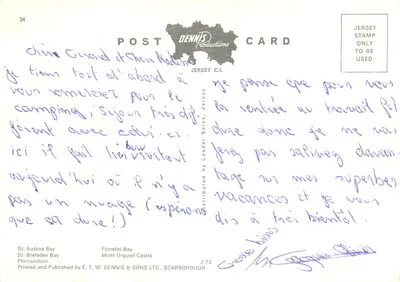 34
POST
CARD
DENNIS
Productions
JERSEY C.I.
JERSEY
STAMP
ONLY
TO BE
USED
chère Gérard et Chers
je tiens tout d'abord à
vous remercier pour le
camping, séjour très dif-
férent avec celui-ci.
ici il fait très
aujourd'hui où il n'y a
pas un nuage (espérons
que ça dure!)
Distributed by Leader Sales, Jersey
je pense que pour vous
la rentrée au travail fut
dure donc je ne va
pas davan-
tage sur mes superbes
vacances et je vous
dis à très bientôt.
Grosses bises
St. Aubins Bay
St. Brelades Bay
Photocolour
Portelet Bay
Mont Orgueil Castle
J.73
Printed and Published by E. T. W. DENNIS & SONS LTD., SCARBOROUGH